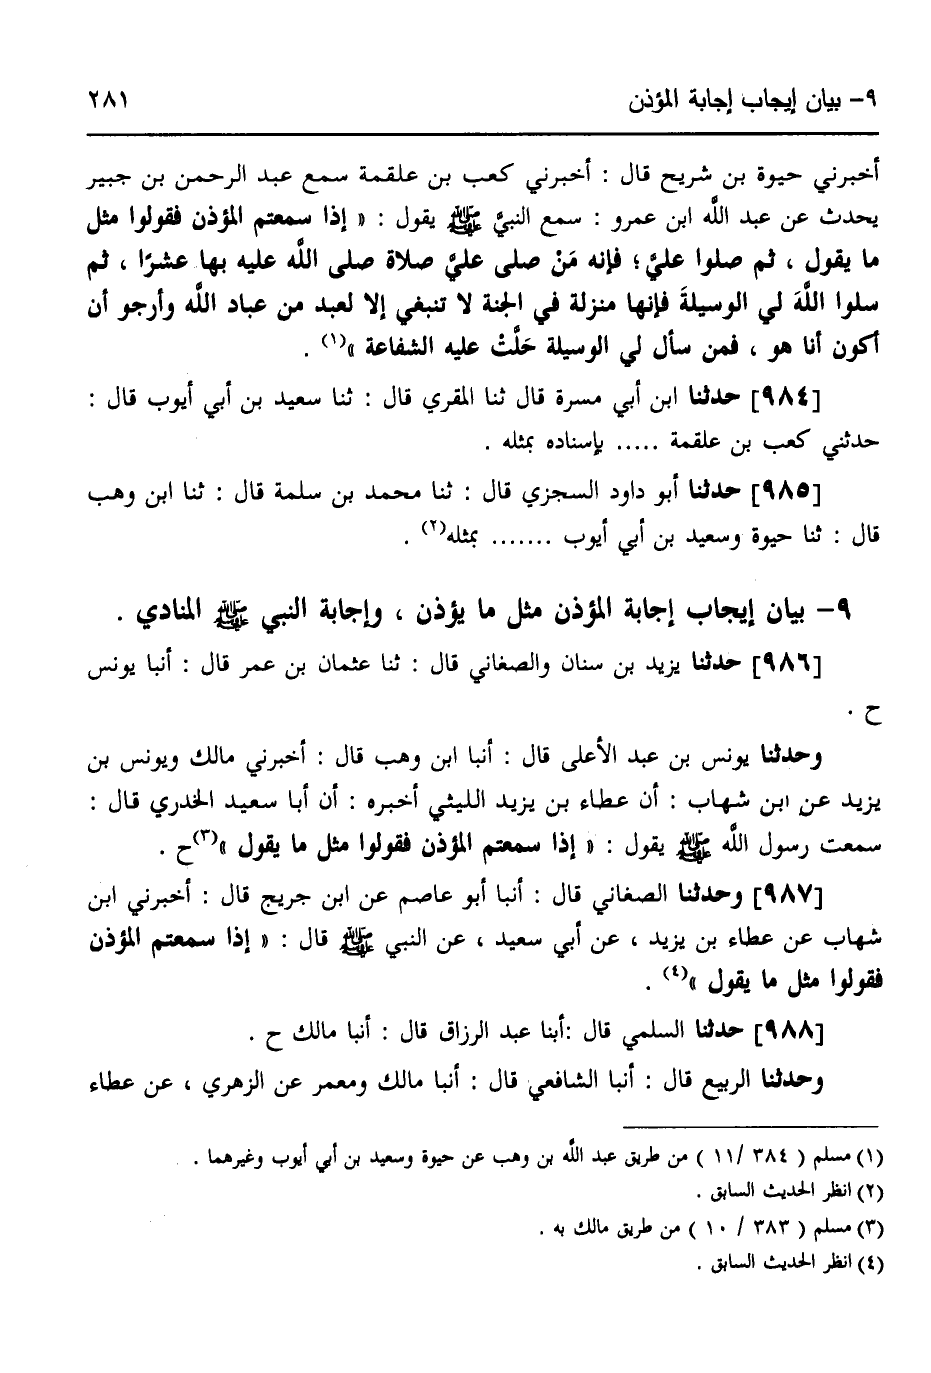 ٩- بيان إيجاب إجابة المؤذن ٢٨١
أخبرني حيوة بن شريح قال : أخبرني كعب بن علقمة سمع عبد الرحمن بن جبير
يحدث عن عبد اللَّه ابن عمرو : سمع النبيَّ ﷺ يقول : « إذا سمعتم المؤذن فقولوا مثل
ما يقول ، ثم صلوا عليَّ؛ فإنه مَنْ صلى عليَّ صلاة صلى اللَّه عليه بها عشرًا ، ثم
سلوا اللَّهَ لي الوسيلةَ فإنها منزلة في الجنة لا تنبغي إلا لعبد من عباد اللَّه وأرجو أن
أكون أنا هو ، فمن سأل لي الوسيلة حَلَّتْ عليه الشفاعة »(١) .
[٩٨٤] حدثنا ابن أبي مسرة قال ثنا المقري قال : ثنا سعيد بن أبي أيوب قال :
حدثني كعب بن علقمة ..... بإسناده بمثله .
[٩٨٥] حدثنا أبو داود السجزي قال : ثنا محمد بن سلمة قال : ثنا ابن وهب
قال : ثنا حيوة وسعيد بن أبي أيوب ....... بمثله(٢) .
٩- بيان إيجاب إجابة المؤذن مثل ما يؤذن ، وإجابة النبي ﷺ المنادي .
[٩٨٦] حدثنا يزيد بن سنان والصغاني قال : ثنا عثمان بن عمر قال : أنبا يونس
ح .
وحدثنا يونس بن عبد الأعلى قال : أنبا ابن وهب قال : أخبرني مالك ويونس بن
يزيد عن ابن شهاب : أن عطاء بن يزيد الليثي أخبره : أن أبا سعيد الخدري قال :
سمعت رسول اللَّه ﷺ يقول : « إذا سمعتم المؤذن فقولوا مثل ما يقول »(٣)ح .
[٩٨٧] وحدثنا الصغاني قال : أنبا أبو عاصم عن ابن جريج قال : أخبرني ابن
شهاب عن عطاء بن يزيد ، عن أبي سعيد ، عن النبي ﷺ قال : « إذا سمعتم المؤذن
فقولوا مثل ما يقول »(٤) .
[٩٨٨] حدثنا السلمي قال :أبنا عبد الرزاق قال : أنبا مالك ح .
وحدثنا الربيع قال : أنبا الشافعي قال : أنبا مالك ومعمر عن الزهري ، عن عطاء
(١) مسلم ( ٣٨٤ /١١ ) من طريق عبد اللَّه بن وهب عن حيوة وسعيد بن أبي أيوب وغيرهما .
(٢) انظر الحديث السابق .
(٣) مسلم ( ٣٨٣ / ١٠ ) من طريق مالك به .
(٤) انظر الحديث السابق .